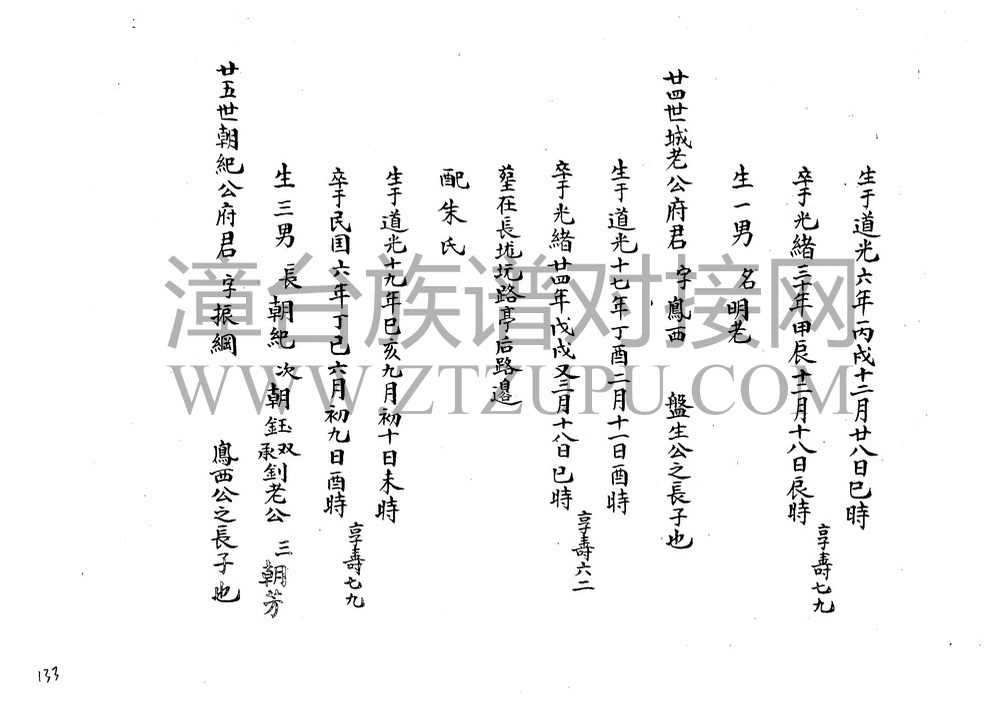 生于道光六年丙戌十二月廿八日巳時
卒于光緒三十年甲辰十二月十八日辰時 享壽七九
生一男 名明老
廿四世城老公府君 字鳳西 盤生公之長子也
生于道光十七年丁酉二月十一日酉時
卒于光緒廿四年戊戌又三月十八日巳時 享壽六二
塟在長垅坑路亭后路邊
配朱氏
生于道光十九年已亥九月初十日未時
卒于民国六年丁巳六月初九日酉時 享壽七九
生三男 長朝紀 次朝鈺双承釗老公 三朝芳
廿五世朝紀公府君 字振綱 鳳西公之長子也
漳台族谱对接网
WWW.ZTZUPU.COM
133